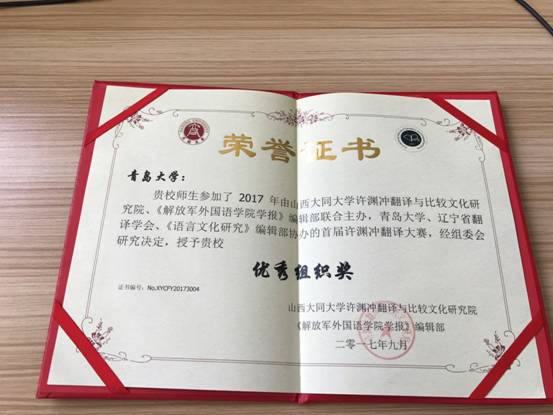 荣誉证书
青岛大学：
贵校师生参加了 2017 年由山西大同大学许渊冲翻译与比较文化研
究院、《解放军外国语学院学报》编辑部联合主办，青岛大学、辽宁省翻
译学会、《语言文化研究》编辑部协办的首届许渊冲翻译大赛，经组委会
研究决定，授予贵校
优秀组织奖
证书编号：No.XYCFY20173004
山西大同大学许渊冲翻译与比较文化研究院
《解放军外国语学院学报》编辑部
二〇一七年九月